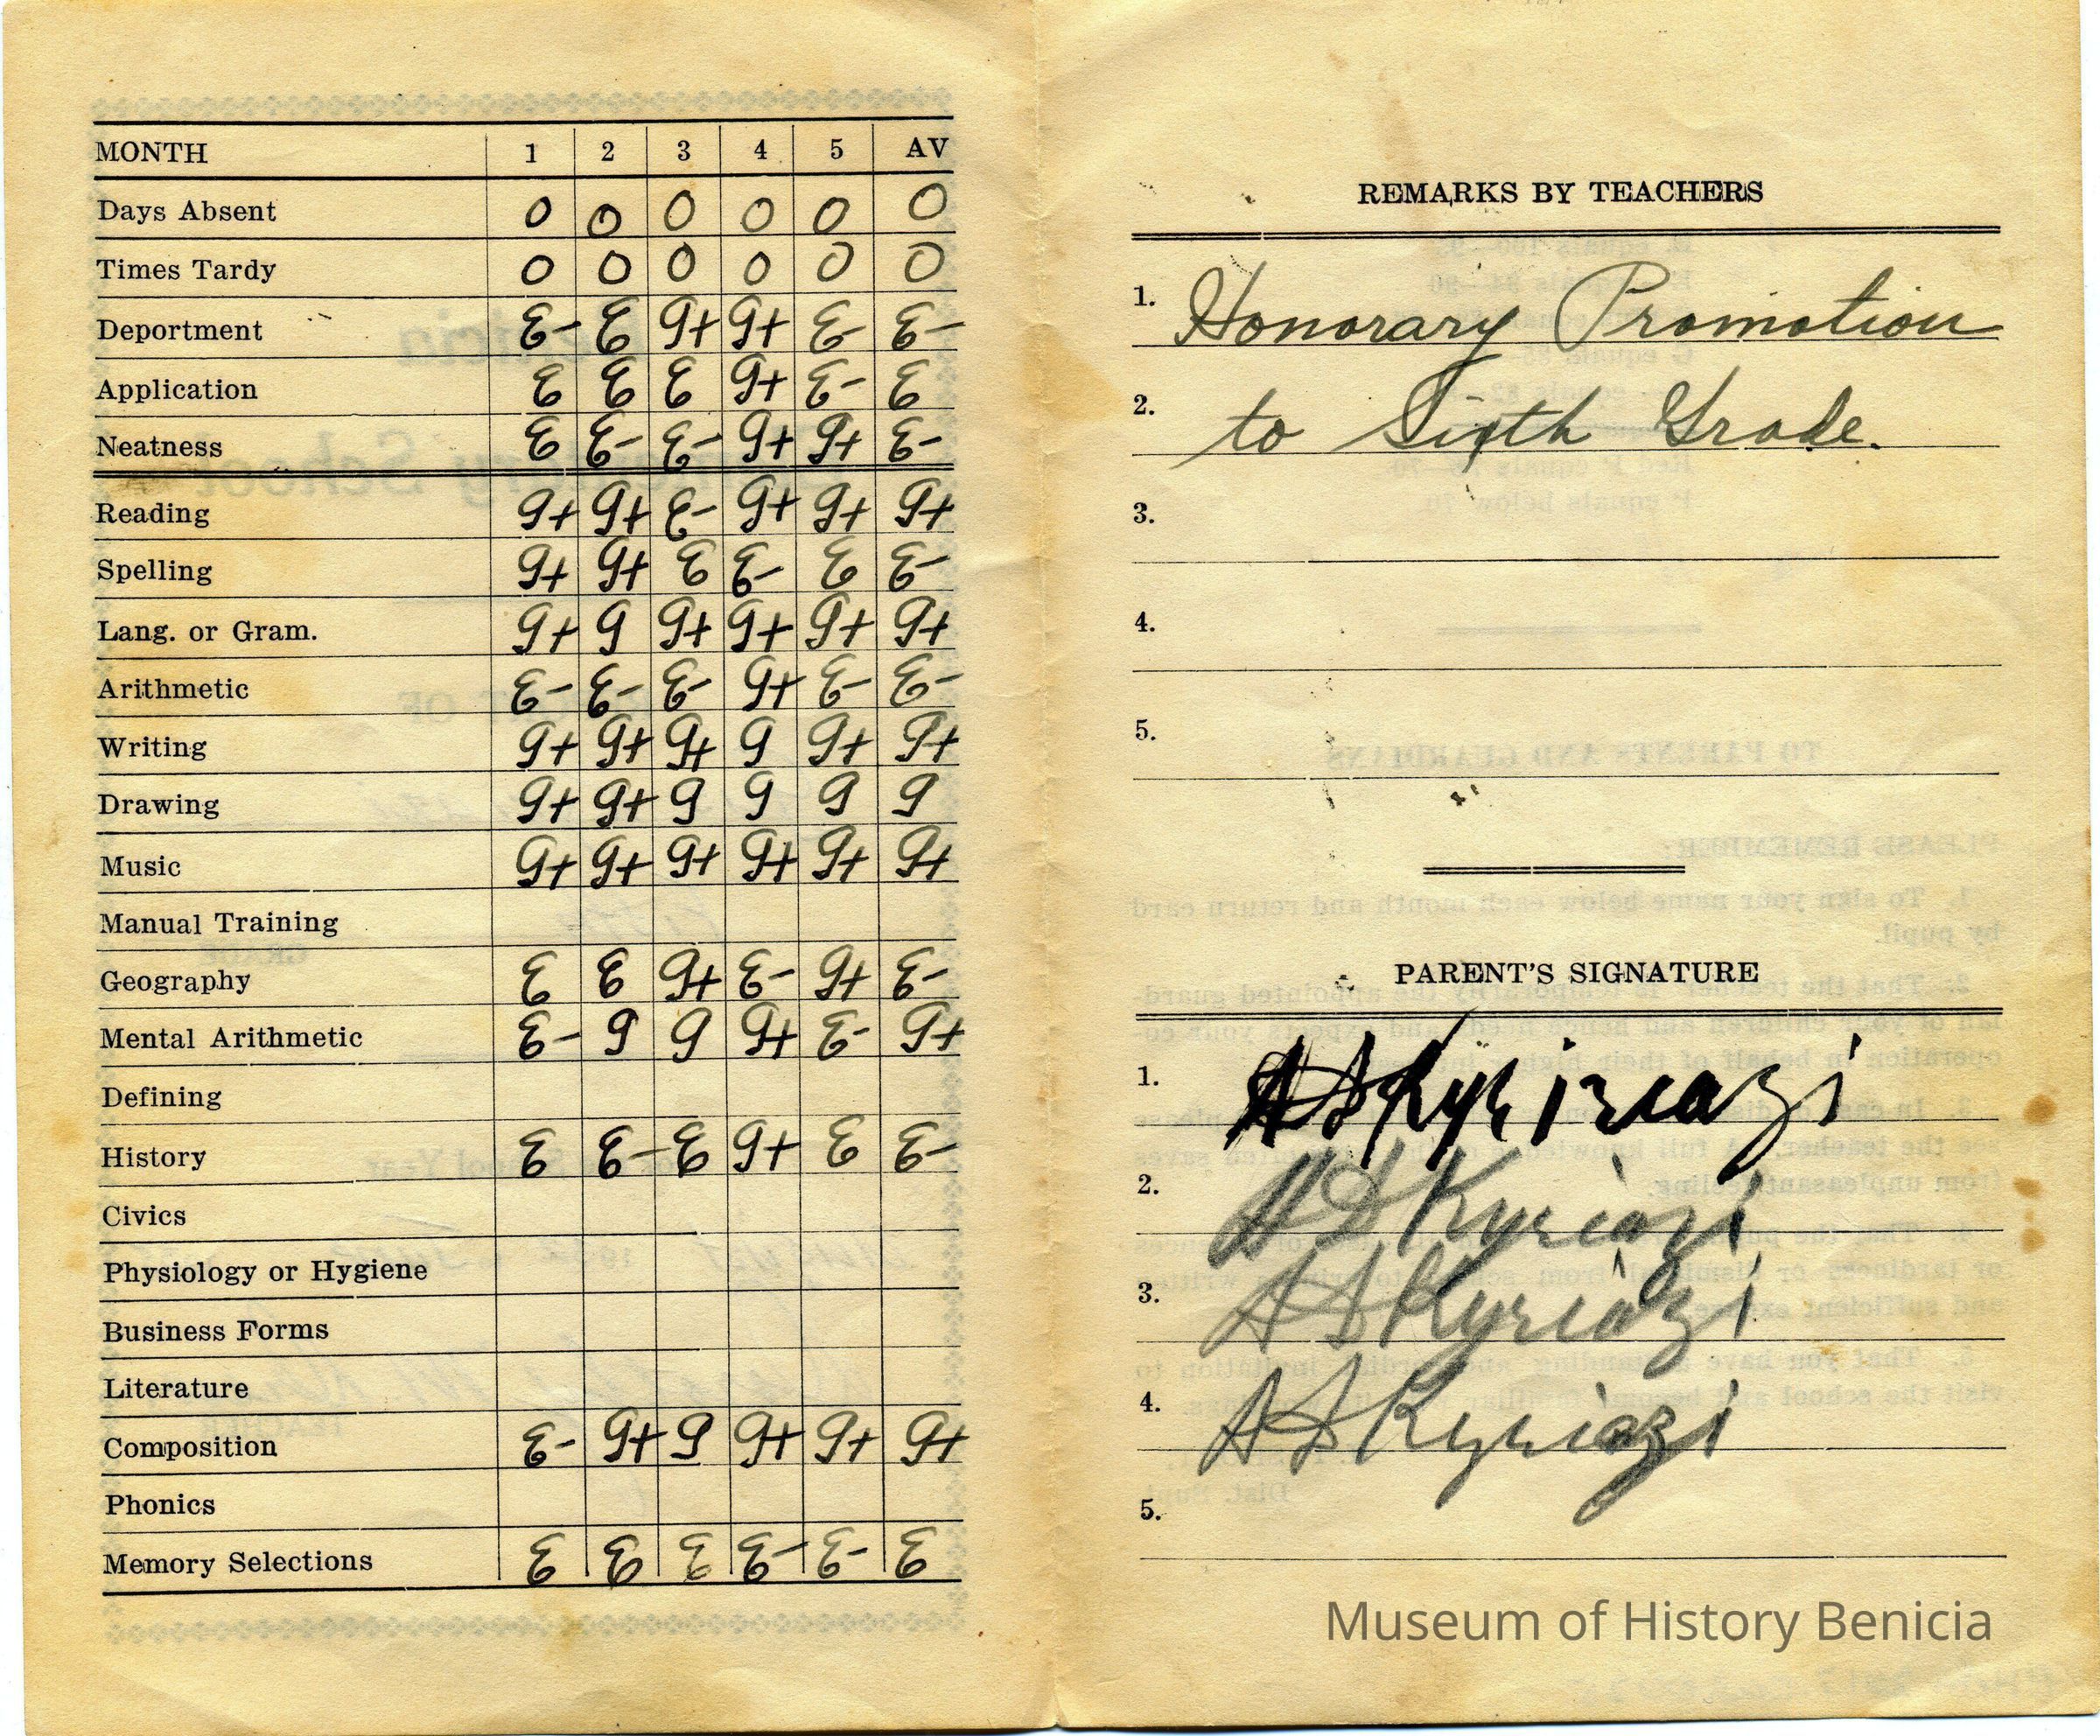 MONTH 1 2 3 4 5 AV
Days Absent 0 0 0 0 0 0
Times Tardy 0 0 0 0 0 0
Deportment E- E G+ G+ E- E-
Application E E E G+ E- E
Neatness E E- E- G+ G+ E-
Reading G+ G+ E- G+ G+ G+
Spelling G+ G+ E E- E E-
Lang. or Gram. G+ G G+ G+ G+ G+
Arithmetic E- E- E- G+ E- E-
Writing G+ G+ G+ G G+ G+
Drawing G+ G+ G G G G
Music G+ G+ G+ G+ G+ G+
Manual Training
Geography E E G+ E- G+ E-
Mental Arithmetic E- G G G+ E- G+
Defining
History E E- E G+ E E-
Civics
Physiology or Hygiene
Business Forms
Literature
Composition E- G+ G G+ G+ G+
Phonics
Memory Selections E E E E- E- E
REMARKS BY TEACHERS
1. Honorary Promotion
2. to Sixth Grade.
3.
4.
5.
PARENT'S SIGNATURE
1. Kyriazi
2. Kyriazi
3. Kyriazi
4. Kyriazi
5.
Museum of History Benicia